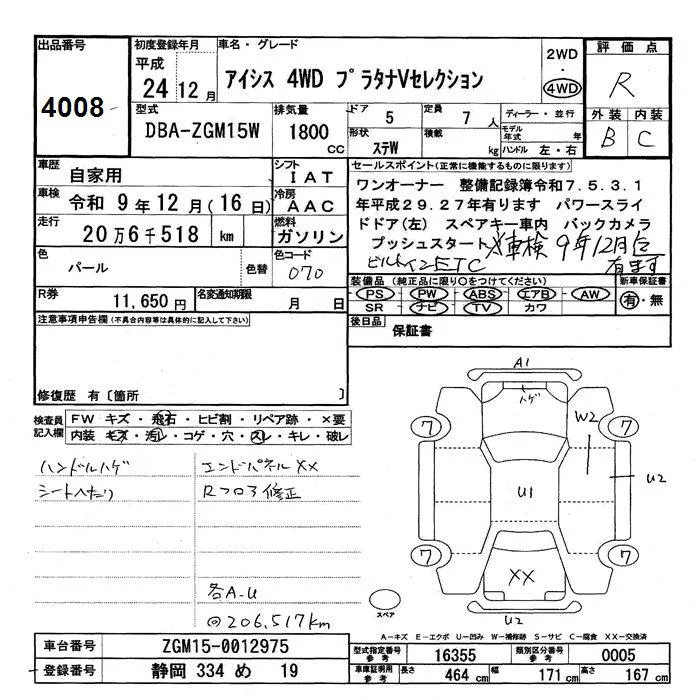 出品番号 4008
初度登録年月 平成 24 12 月
車名・グレード アイシス 4WD プラタナVセレクション
2WD ・ 4WD
評価点 R
型式 DBA-ZGM15W
排気量 1800 CC
ドア 5
定員 7 人
形状 ステW
積載 kg
ディーラー・並行
モデル年式 年
ハンドル 左・右
外装 B
内装 C
車歴 自家用
シフト IAT
車検 令和 9 年 12 月 (16 日)
冷房 AAC
走行 20 万 6 千 518 km
燃料 ガソリン
色 パール 色替
色コード 070
R券 11,650 円
名変通知期限 月 日
セールスポイント(正常に機能するものに限ります)
ワンオーナー 整備記録簿令和7.5.3.1
年平成29.27年有ります パワースライ
ドドア(左) スペアキー車内 バックカメラ
プッシュスタート 車検9年12月迄
ビルトインETC 有ます
装備品 (純正品に限り○をつけてください)
PS - PW - ABS - エアB - AW
SR ナビ TV カワ
新車保証書 有・無
後日品 保証書
注意事項申告欄 (不具合内容等は具体的に記入して下さい)
修復歴 有〔箇所 〕
検査員記入欄
FW キズ・飛石・ヒビ割・リペア跡・×要
内装 キズ・汚レ・コゲ・穴・スレ・キレ・破レ
ハンドルハゲ
シートへたり
エンドパネルXX
Rフロア修正
各A-U
@206,517km
A1
ハゲ
7 7
W2
U1
U2
7 7
XX
U2
スペア
A-キズ E-エクボ U-凹み W-補修跡 S-サビ C-腐食 XX-交換済
車台番号 ZGM15-0012975
登録番号 静岡 334 め 19
型式指定番号 参考 16355
類別区分番号 参考 0005
車庫証明用 参考 長さ 464 cm 幅 171 cm 高さ 167 cm